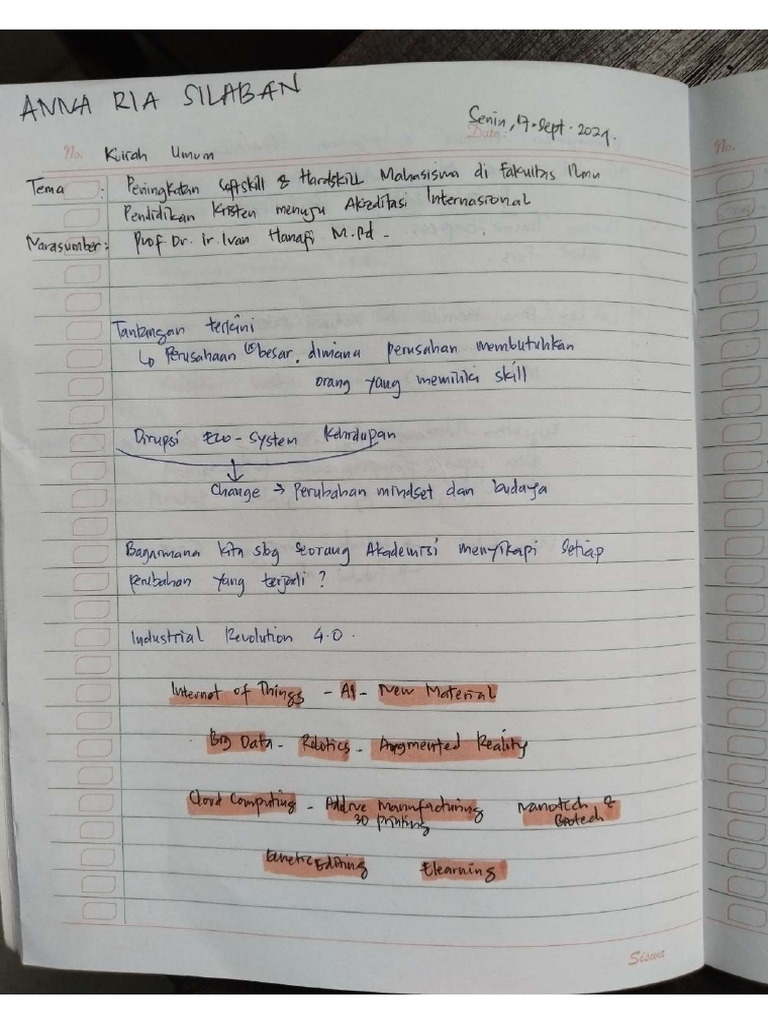 ANNA RIA SILABAN
Senin, 17 Sept. 2021.
Date:
No. Kuliah Umum
No.
Tema : Peningkatan Softskill & Hardskill Mahasiswa di Fakultas Ilmu
Pendidikan Kristen menuju Akreditasi Internasional
Narasumber : Prof. Dr. Ir. Ivan Hanafi M.Pd -
Tantangan terkini
↳ Perusahaan besar, dimana perusahan membutuhkan
orang yang memiliki skill
Dirupsi Eco-System Kehidupan
↓
Change → Perubahan mindset dan budaya
Bagaimana kita sbg seorang Akademisi menyikapi setiap
perubahan yang terjadi ?
Industrial Revolution 4.0.
Internet of Things - AI - New Material
Big Data - Robotics - Augmented Reality
Cloud Computing - Addive Manufacturing Nanotech &
3D printing Biotech
Genetic Editing Elearning
Siswa